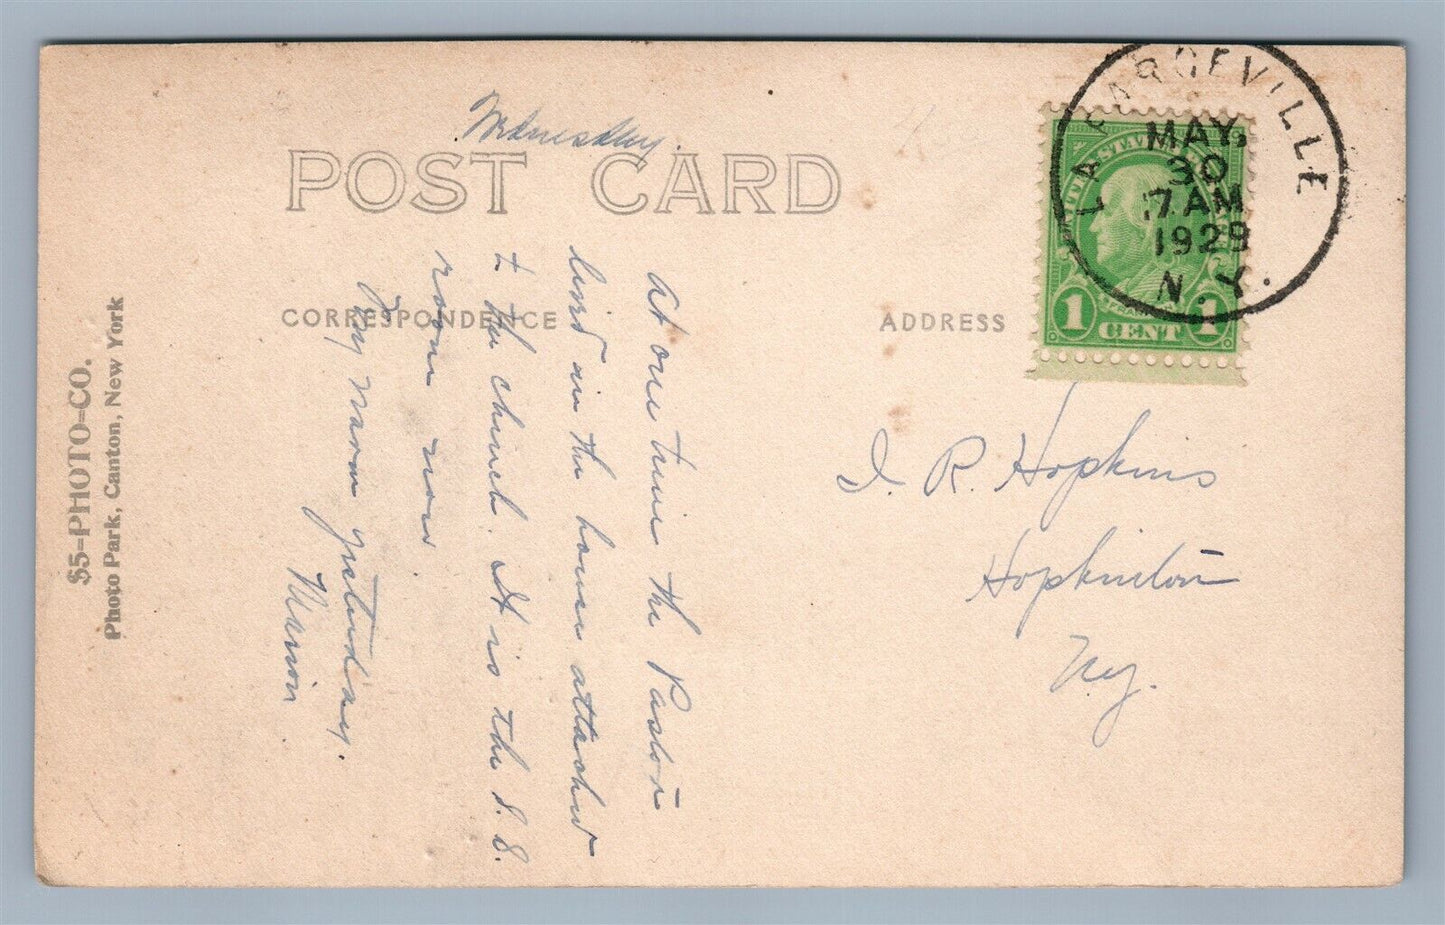 Wednesday.
POST CARD
CORRESPONDENCE
ADDRESS
LA FARGEVILLE
MAY,
30
7 AM
1929
N.Y.
UNITED STATES POSTAGE
FRANKLIN
1 CENT 1
At one time the Pastor
lived in the house attached
+ the church. It is the S.S.
room now
Very warm yesterday.
Marion
I. R. Hopkins
Hopkinton
Ny.
$5-PHOTO-CO.
Photo Park, Canton, New York